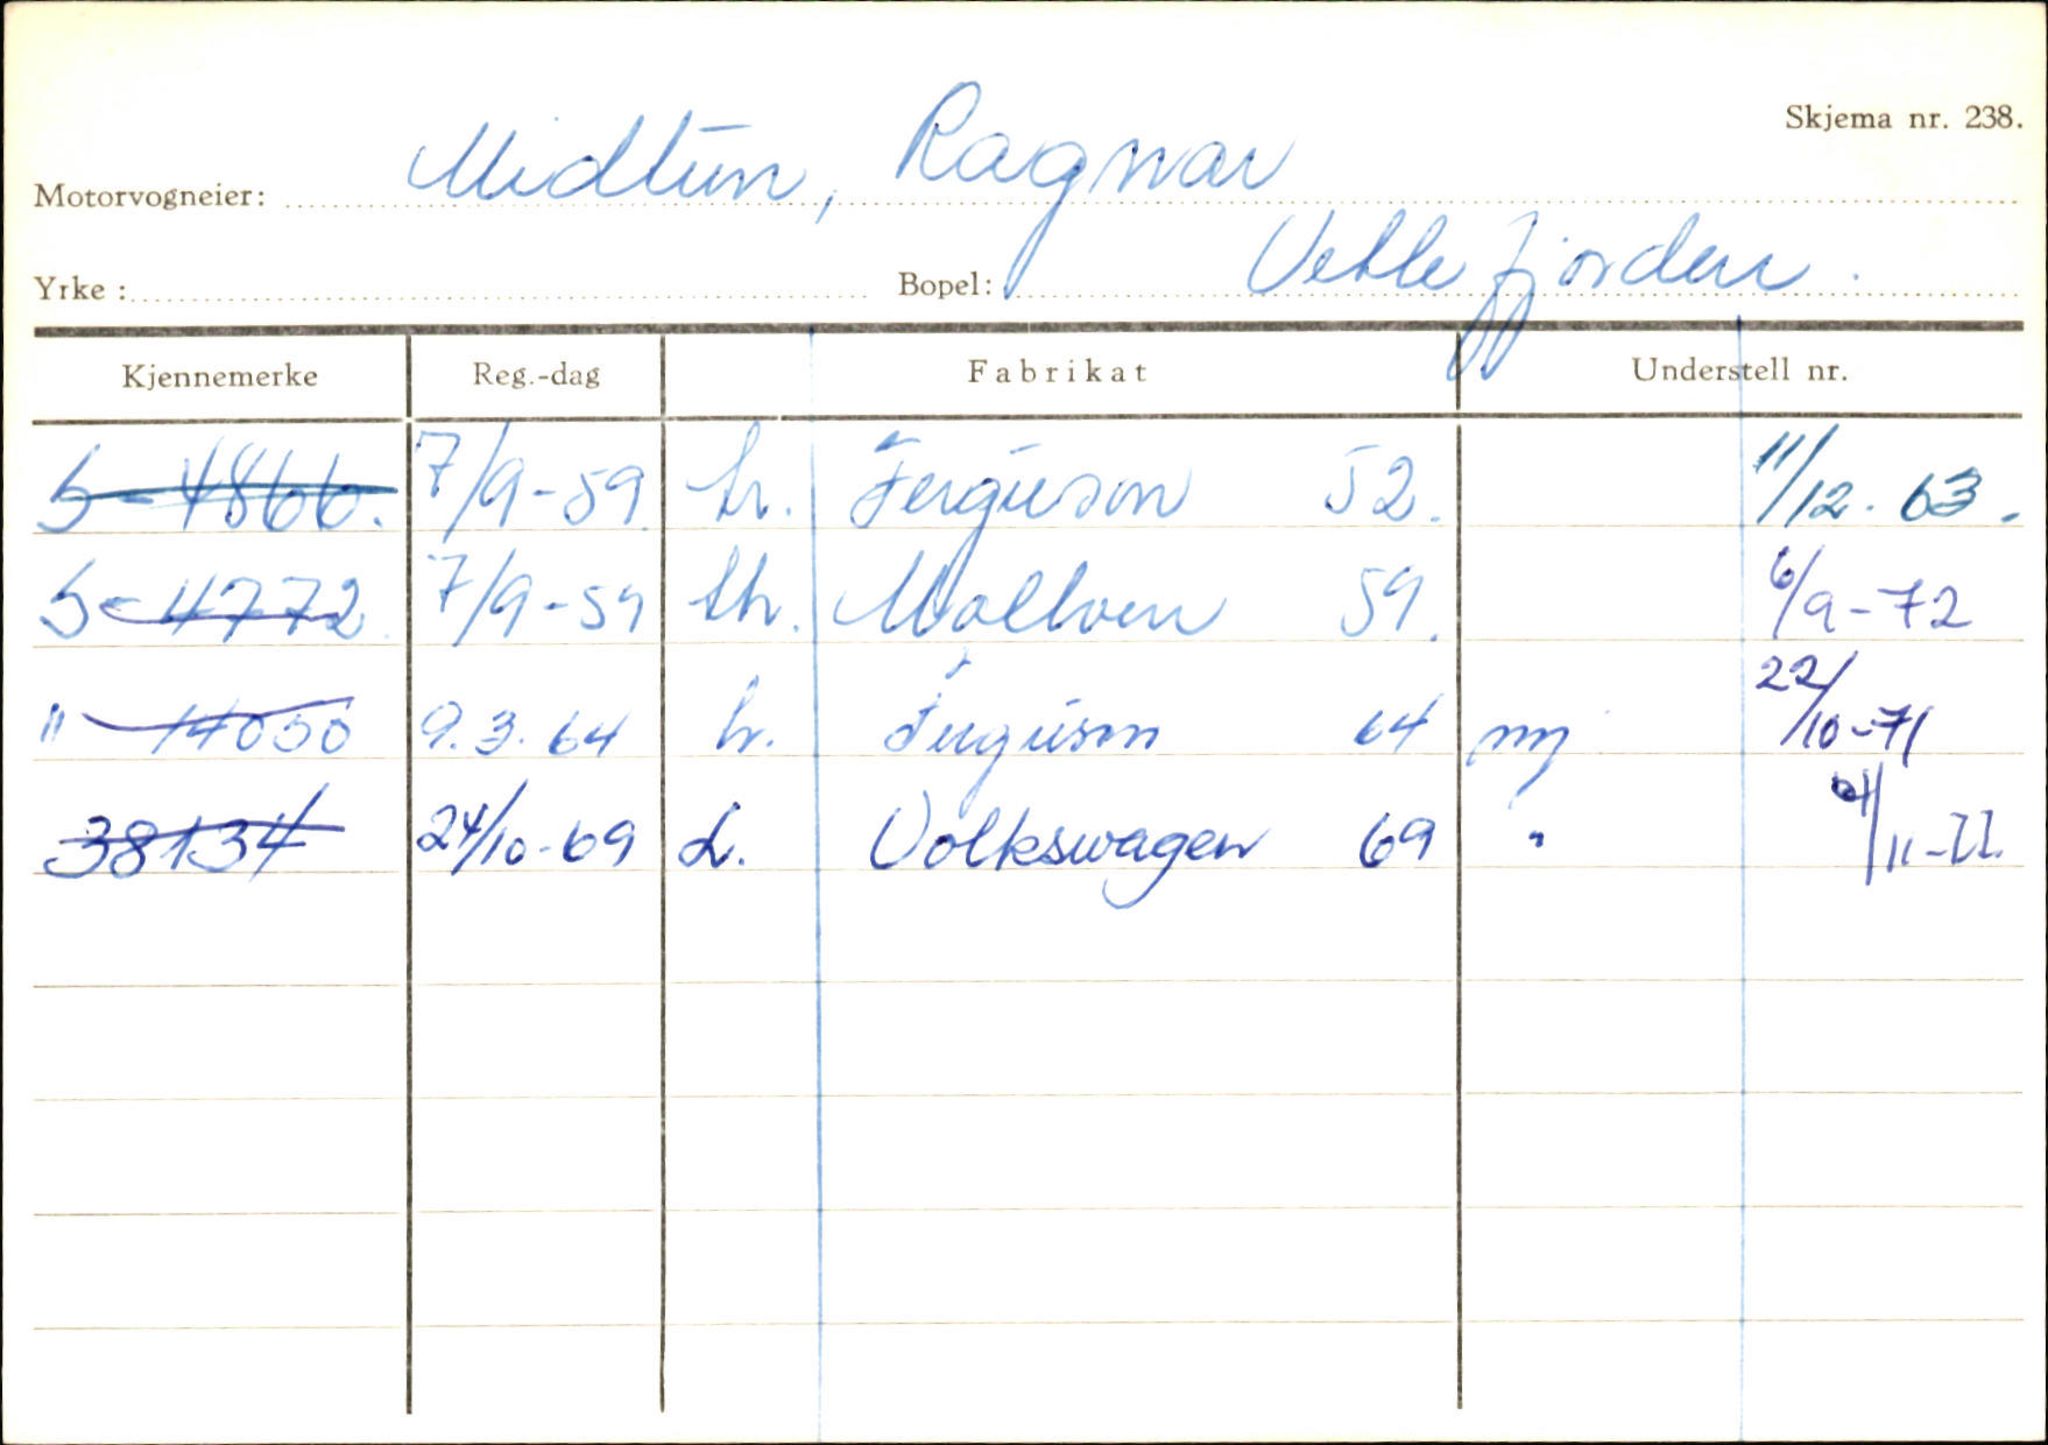 Skjema nr. 238.
Motorvogneier: Midtun, Ragnar
Yrke: Bopel: Vetlefjorden.
Kjennemerke Reg.-dag Fabrikat Understell nr.
S-4866. 7/9-59. tr. Ferguson 52. 11/12.63.
S-4772. 7/9-59 th. 59. 6/9-72
" 14050 9.3.64 tr. Ferguson 64 ny 22/10-71
38134 24/10-69 L. Volkswagen 69 " /11-77.